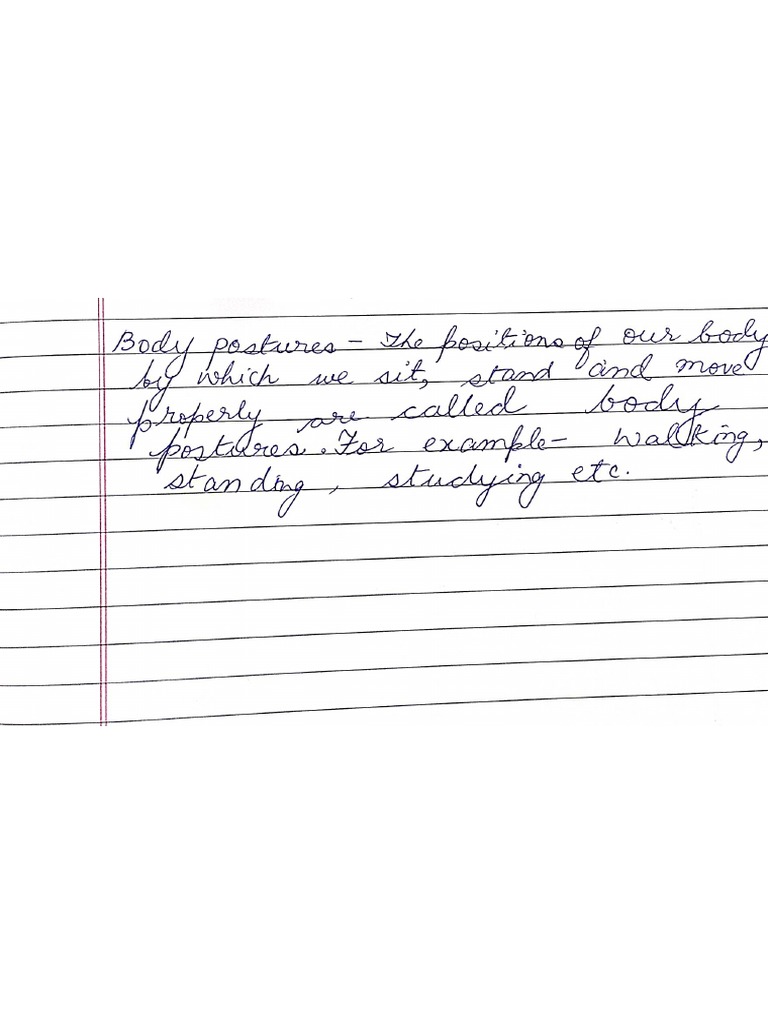 Body postures - The positions of our body
by which we sit, stand and move
properly are called body
postures. For example - walking,
standing, studying etc.